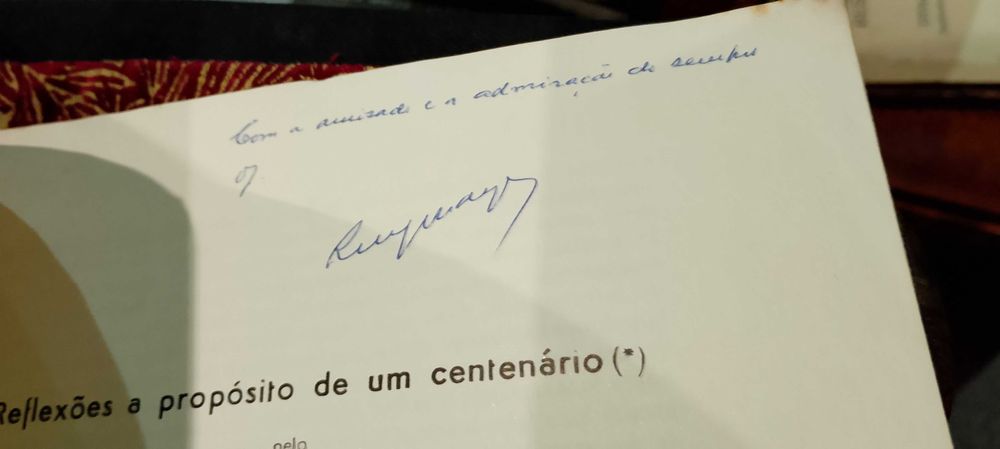 Com a amizade e a admiração de sempre
of.
Ruy Mayer
Reflexões a propósito de um centenário (*)
pelo